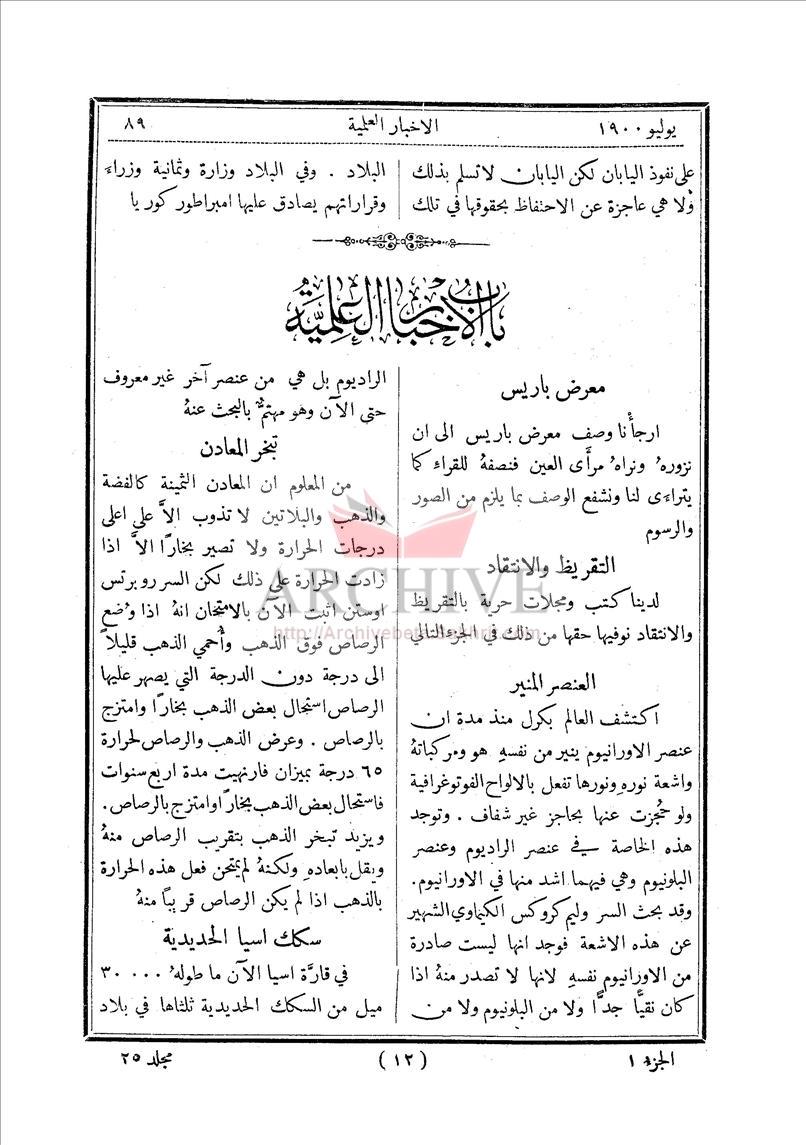 يوليو ١٩٠٠
الاخبار العلمية
٨٩
على نفوذ اليابان لكن اليابان لا تسلم بذلك
ولا هي عاجزة عن الاحتفاظ بحقوقها في تلك
البلاد . وفي البلاد وزارة وثمانية وزراء
وقراراتهم يصادق عليها امبراطور كوريا
باب الاخبار العلمية
معرض باريس
ارجأنا وصف معرض باريس الى ان
نزوره ونراه مرأى العين فنصفه للقراء كما
يتراءى لنا ونشفع الوصف بما يلزم من الصور
والرسوم
التقريظ والانتقاد
لدينا كتب ومجلات حرية بالتقريظ
والانتقاد نوفيها حقها من ذلك في الجزء التالي
العنصر المنير
اكتشف العالم بكرل منذ مدة ان
عنصر الاورانيوم ينير من نفسهِ هو ومركباتهُ
واشعة نورهِ ونورها تفعل بالالواح الفوتوغرافية
ولو حُجزت عنها بحاجز غير شفاف . وتوجد
هذه الخاصة في عنصر الراديوم وعنصر
البلونيوم وهي فيهما اشد منها في الاورانيوم .
وقد بحث السر وليم كروكس الكيماوي الشهير
عن هذه الاشعة فوجد انها ليست صادرة
من الاورانيوم نفسهِ لانها لا تصدر منهُ اذا
كان نقيًّا جدًّا ولا من البلونيوم ولا من
الراديوم بل هي من عنصر آخر غير معروف
حتى الآن وهو مهتمٌّ بالبحث عنهُ
تبخر المعادن
من المعلوم ان المعادن الثمينة كالفضة
والذهب والبلاتين لا تذوب الاَّ على اعلى
درجات الحرارة ولا تصير بخارًا الاَّ اذا
زادت الحرارة على ذلك لكن السر روبرتس
اوستن اثبت الآن بالامتحان انهُ اذا وُضع
الرصاص فوق الذهب وأُحمي الذهب قليلاً
الى درجة دون الدرجة التي يصهر عليها
الرصاص استحال بعض الذهب بخارًا وامتزج
بالرصاص . وعرض الذهب والرصاص لحرارة
٦٥ درجة بميزان فارنهيت مدة اربع سنوات
فاستحال بعض الذهب بخارًا وامتزج بالرصاص .
ويزيد تبخر الذهب بتقريب الرصاص منهُ
ويقل بابعاده ولكنهُ لم يمتحن فعل هذه الحرارة
بالذهب اذا لم يكن الرصاص قريبًا منهُ
سكك اسيا الحديدية
في قارَّة اسيا الآن ما طولهُ ٣٠٠٠٠
ميل من السكك الحديدية ثلثاها في بلاد
الجزء ١
( ١٢ )
مجلد ٢٥
ARCHIVE